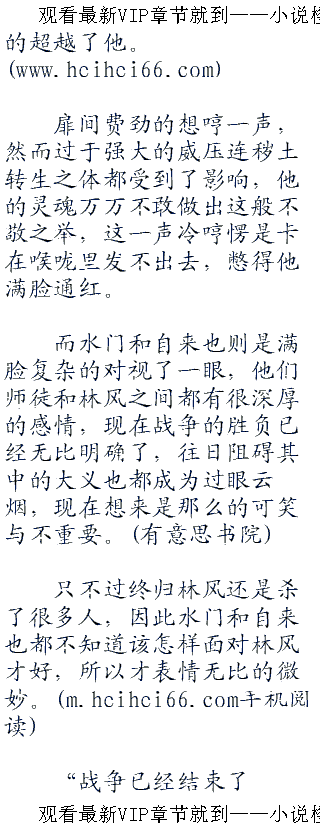 观看最新VIP章节就到——小说
的超越了他。
(www.hcihci66.com)
扉间费劲的想哼一声，
然而过于强大的威压连秽土
转生之体都受到了影响，他
的灵魂万万不敢做出这般不
敬之举，这一声冷哼愣是卡
在喉咙里发不出去，憋得他
满脸通红。
而水门和自来也则是满
脸复杂的对视了一眼，他们
师徒和林风之间都有很深厚
的感情，现在战争的胜负已
经无比明确了，往日阻碍其
中的大义也都成为过眼云
烟，现在想来是那么的可笑
与不重要。(有意思书院)
只不过终归林风还是杀
了很多人，因此水门和自来
也都不知道该怎样面对林风
才好，所以才表情无比的微
妙。(m.hcihci66.com手机阅
读)
“战争已经结束了
观看最新VIP章节就到——小说